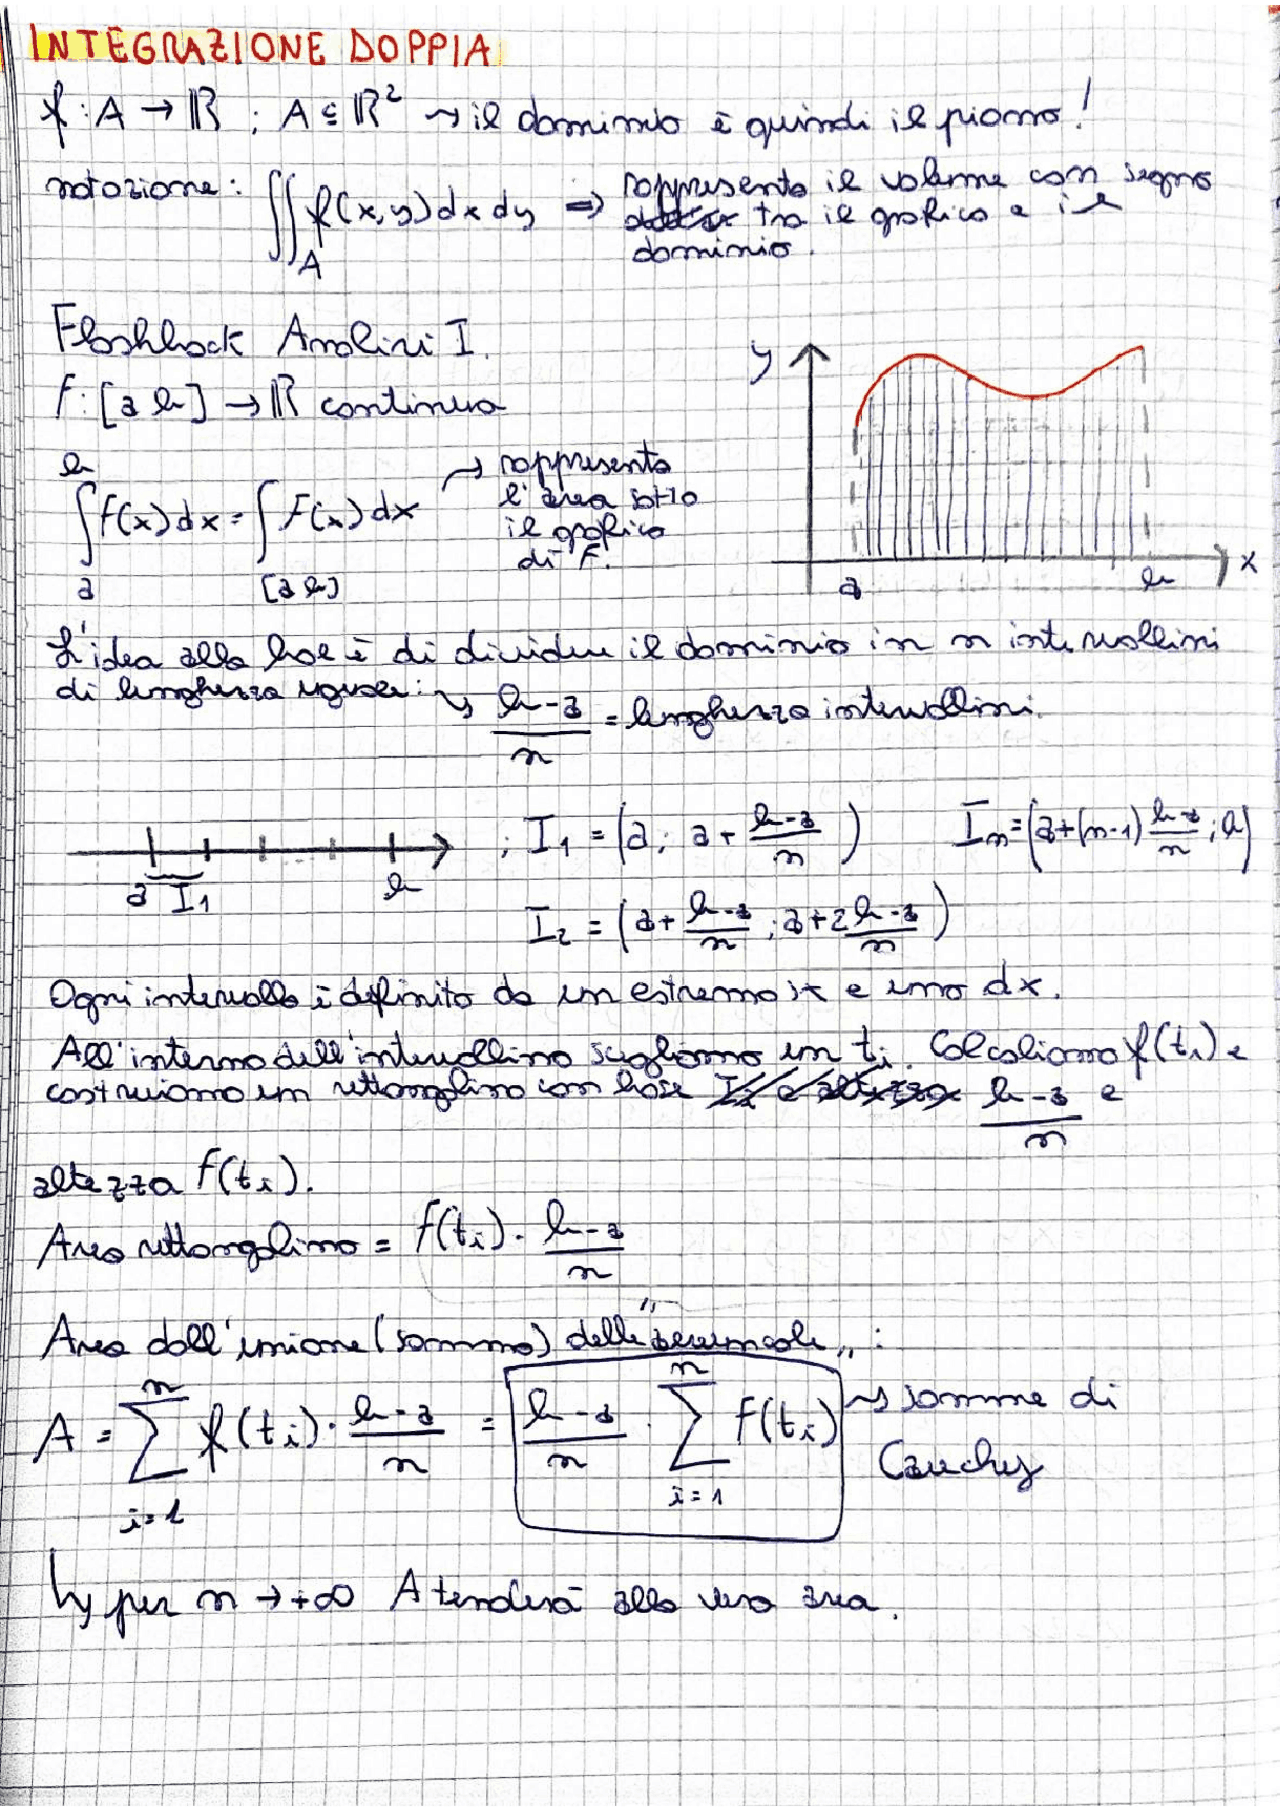 INTEGRAZIONE DOPPIA
f: A → ℝ ; A ⊆ ℝ² ⇝ il dominio è quindi il piano!
notazione: ∬_A f(x,y) dx dy ⇒ rappresenta il volume con segno
tra il grafico e il
dominio.
Flashback Analisi I.
f: [a b] → ℝ continua
y
∫_a^b f(x) dx = ∫_[a b] f(x) dx → rappresenta
l'area sotto
il grafico
di f.
a b x
L'idea alla base è di dividere il dominio in n intervallini
di lunghezza uguale: ↝ (b-a)/n = lunghezza intervallini.
a I₁ b ; I₁ = (a; a + (b-a)/n) Iₙ = (a+(n-1) (b-a)/n ; b)
I₂ = (a + (b-a)/n ; a+2 (b-a)/n)
Ogni intervallo è definito da un estremo sx e uno dx.
All'interno dell'intervallino scegliamo un tᵢ. Calcoliamo f(tᵢ) e
costruiamo un rettangolino con base (b-a)/n e
altezza f(tᵢ).
Area rettangolino = f(tᵢ) · (b-a)/n
Area dall'unione (somma) delle "aree :
A = ∑_{i=1}^{n} f(tᵢ) · (b-a)/n = (b-a)/n · ∑_{i=1}^{n} f(tᵢ) ⇝ somme di
Cauchy
↳ per n → +∞ A tenderà alla vera area.